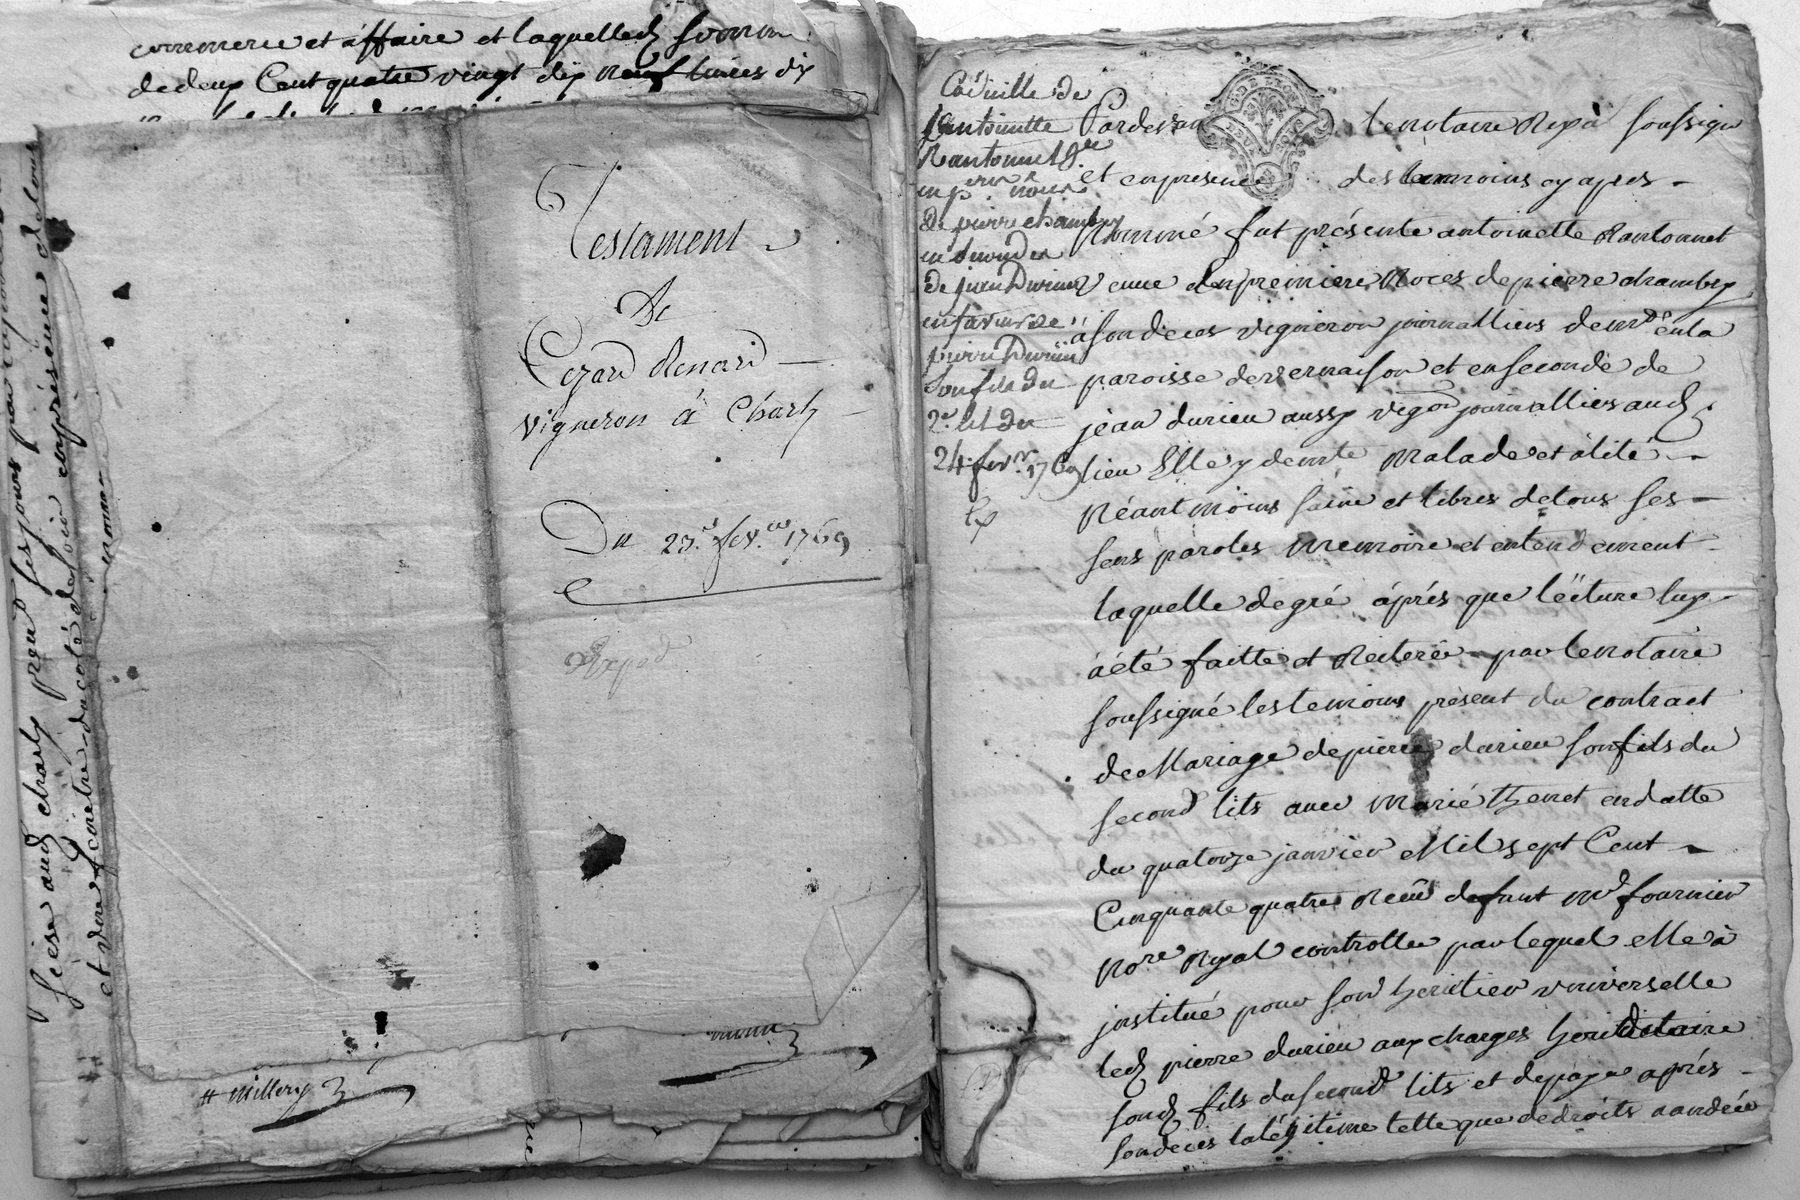 commerce et áffaire et laquelled. somme
dedeux Cent quatre vingt dix neuf livres dix
sieze aud. charly preu
et voire
du coté de soir en présence
Testament
De
Cezard Renard
vigneron á Charly
Du 23.e fev.er 1769
Exped
# Millery
Codicille de
antoinette
Rantonnet
en p.ere noces
de pierre chambry
en secondes
de jean Durieu
en faveur de
pierre Durieu
son fils du
2.e lit du
24 fevr. 1769
Ex
Pardevan le notaire Royà soussigné
et en presence des temoins cy apres
Nommé fut présente antoinette Rantonnet
veuve en premiere Noces de pierre chambry
á son deces vigneron journallier dem.t en la
paroisse de vernaison et en seconde de
jean durieu aussy vigon journallier aud.
lieu Elle y demte Malade et àlité
Néantmoins saine et libres de tous ses
sens paroles memoire et entendement
laquelle de gré áprés que lecture luy
á été faitte et Reiterée par le notaire
soussigné les temoins présent du contract
de Mariage de pierre durieu son fils du
second lits avec marie thenet en datte
du quatorze janvier Mil sept Cent
Cinquante quatre Receu defunt Me fournier
Nore Royal controllée par lequel elle à
jnstitué pour son heritier vniverselle
led. pierre durieu aux charges hereditaire
soud. fils du second lits et de payer aprés
son deces la légitime telle que de droits a andrée